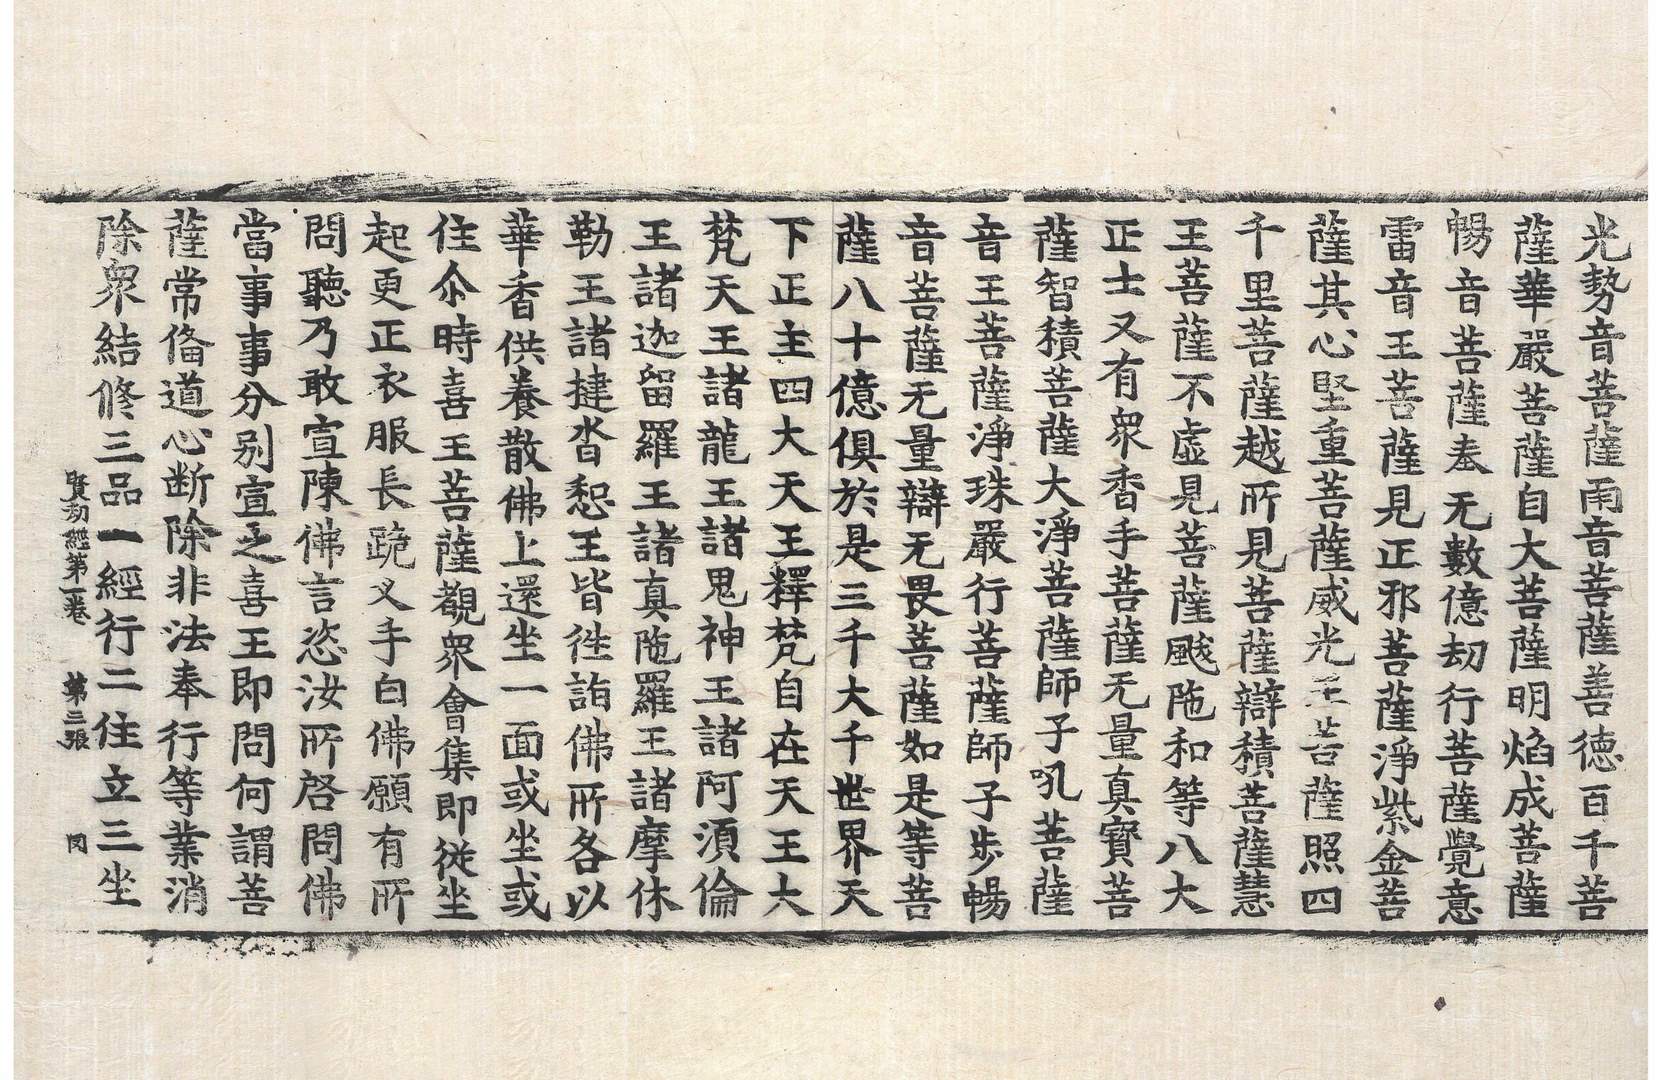 光勢音菩薩雨音菩薩善德百千菩
薩華嚴菩薩自大菩薩明焰成菩薩
暢音菩薩奉无數億劫行菩薩覺意
雷音王菩薩見正邪菩薩淨紫金菩
薩其心堅重菩薩威光王菩薩照四
千里菩薩越所見菩薩辯積菩薩慧
王菩薩不虛見菩薩颰陁和等八大
正士又有衆香手菩薩无量真寶菩
薩智積菩薩大淨菩薩師子吼菩薩
音王菩薩淨珠嚴行菩薩師子步暢
音菩薩无量辯无畏菩薩如是等菩
薩八十億俱於是三千大千世界天
下正主四大天王釋梵自在天王大
梵天王諸龍王諸鬼神王諸阿須倫
王諸迦留羅王諸真陁羅王諸摩休
勒王諸揵沓惒王皆徃詣佛所各以
華香供養散佛上還坐一面或坐或
住尒時喜王菩薩觀衆會集即從坐
起更正衣服長跪叉手白佛願有所
問聽乃敢宣陳佛言恣汝所啓問佛
當事事分別宣之喜王即問何謂菩
薩常俻道心断除非法奉行等業消
除衆結修三品一經行二住立三坐
賢劫經第一卷 第三張 罔